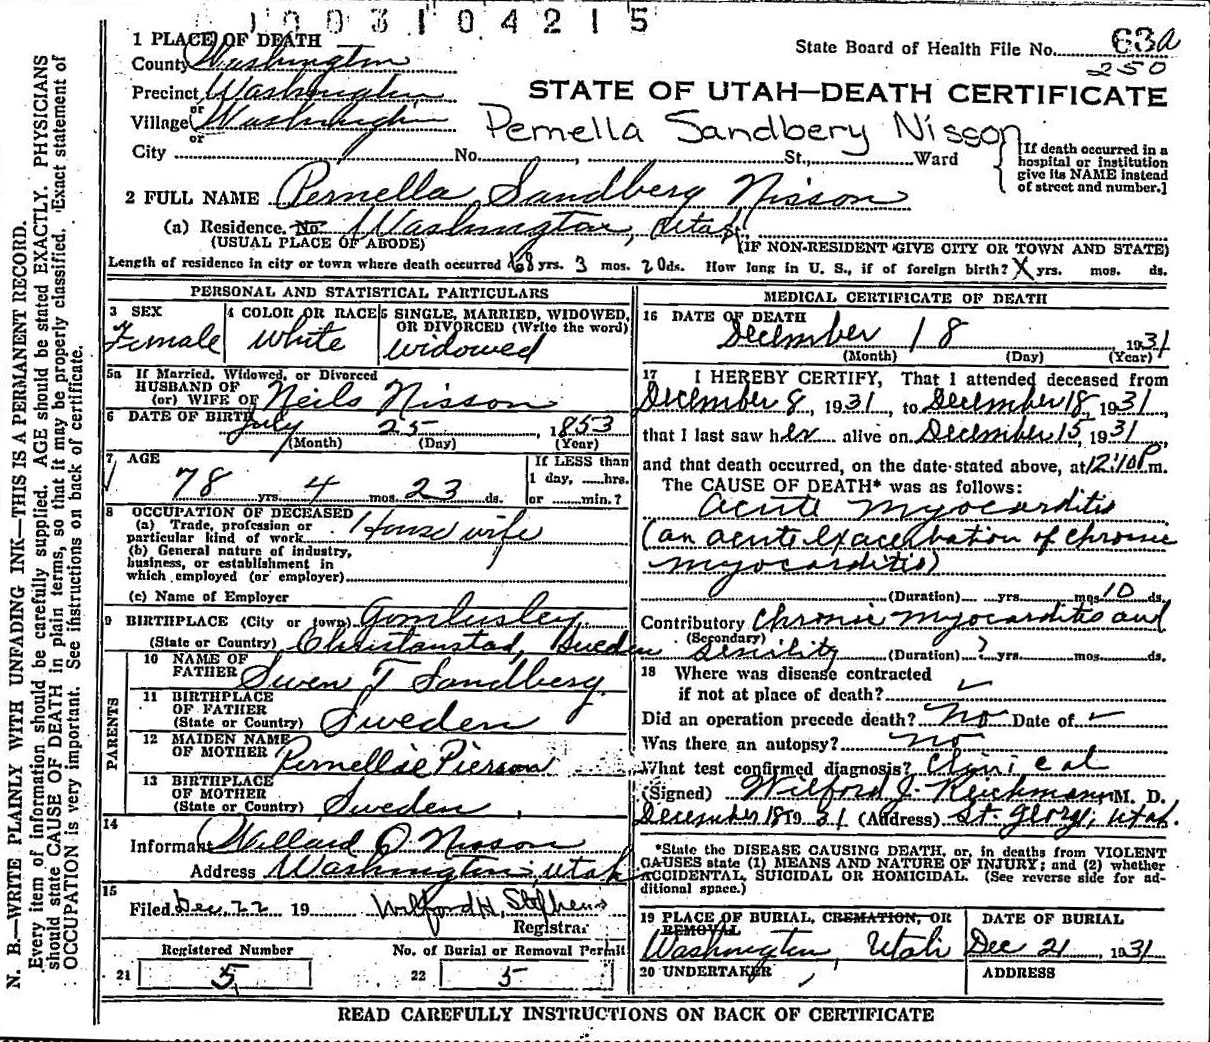 1003104215
1 PLACE OF DEATH
County Washington
State Board of Health File No. 63a
250
Precinct Washington
STATE OF UTAH—DEATH CERTIFICATE
or
Village Washington
Pernella Sandbery Nisson
or
City No. , St., Ward
{If death occurred in a
hospital or institution
give its NAME instead
of street and number.]
2 FULL NAME Pernella Sandberg Nisson
(a) Residence. No. Washington, Utah
(USUAL PLACE OF ABODE) (IF NON-RESIDENT GIVE CITY OR TOWN AND STATE)
Length of residence in city or town where death occurred 68 yrs. 3 mos. 20 ds. How long in U. S., if of foreign birth? X yrs. mos. ds.
PERSONAL AND STATISTICAL PARTICULARS
3 SEX
Female
4 COLOR OR RACE
White
5 SINGLE, MARRIED, WIDOWED,
OR DIVORCED (Write the word)
widowed
5a If Married, Widowed, or Divorced
HUSBAND OF
(or) WIFE OF Neils Nisson
6 DATE OF BIRTH July 25, 1853
(Month) (Day) (Year)
7 AGE
78 yrs. 4 mos. 23 ds.
If LESS than
1 day, hrs.
or min.?
8 OCCUPATION OF DECEASED
(a) Trade, profession or
particular kind of work House wife
(b) General nature of industry,
business, or establishment in
which employed (or employer)
(c) Name of Employer
9 BIRTHPLACE (City or town)
(State or Country) Christanstad, Sweden
PARENTS
10 NAME OF
FATHER Swen T Sandberg
11 BIRTHPLACE
OF FATHER
(State or Country) Sweden
12 MAIDEN NAME
OF MOTHER Pernellie Pierson
13 BIRTHPLACE
OF MOTHER
(State or Country) Sweden,
14
Informant Willard O. Nisson
Address Washington, Utah
15
Filed Dec, 22 19 Wilford H, Stephens
Registrar
Registered Number
21 5
No. of Burial or Removal Permit
22 5
MEDICAL CERTIFICATE OF DEATH
16 DATE OF DEATH
December 18 1931
(Month) (Day) (Year)
17 I HEREBY CERTIFY, That I attended deceased from
December 8, 1931, to December 18, 1931,
that I last saw her alive on December 15, 1931
and that death occurred, on the date stated above, at 12:10 P m.
The CAUSE OF DEATH* was as follows:
Acute Myocarditis
(an acute exacerbation of chronic
myocarditis)
(Duration) yrs. mos. 10 ds.
Contributory Chronic myocarditis and
(Secondary)
Senility (Duration) ? yrs. mos. ds.
18 Where was disease contracted
if not at place of death? ✓
Did an operation precede death? No Date of ✓
Was there an autopsy? No
What test confirmed diagnosis? Clinical
(Signed) Wilford J. Reichmann, M. D.
December 18 19 31 (Address) St. George, Utah.
*State the DISEASE CAUSING DEATH, or, in deaths from VIOLENT
CAUSES state (1) MEANS AND NATURE OF INJURY; and (2) whether
ACCIDENTAL, SUICIDAL OR HOMICIDAL. (See reverse side for ad-
ditional space.)
19 PLACE OF BURIAL, CREMATION, OR
REMOVAL
Washington, Utah
DATE OF BURIAL
Dec 21, 1931
20 UNDERTAKER
ADDRESS
READ CAREFULLY INSTRUCTIONS ON BACK OF CERTIFICATE
N. B.—WRITE PLAINLY WITH UNFADING INK—THIS IS A PERMANENT RECORD.
Every item of information should be carefully supplied. AGE should be stated EXACTLY. PHYSICIANS
should state CAUSE OF DEATH in plain terms, so that it may be properly classified. Exact statement of
OCCUPATION is very important. See instructions on back of certificate.